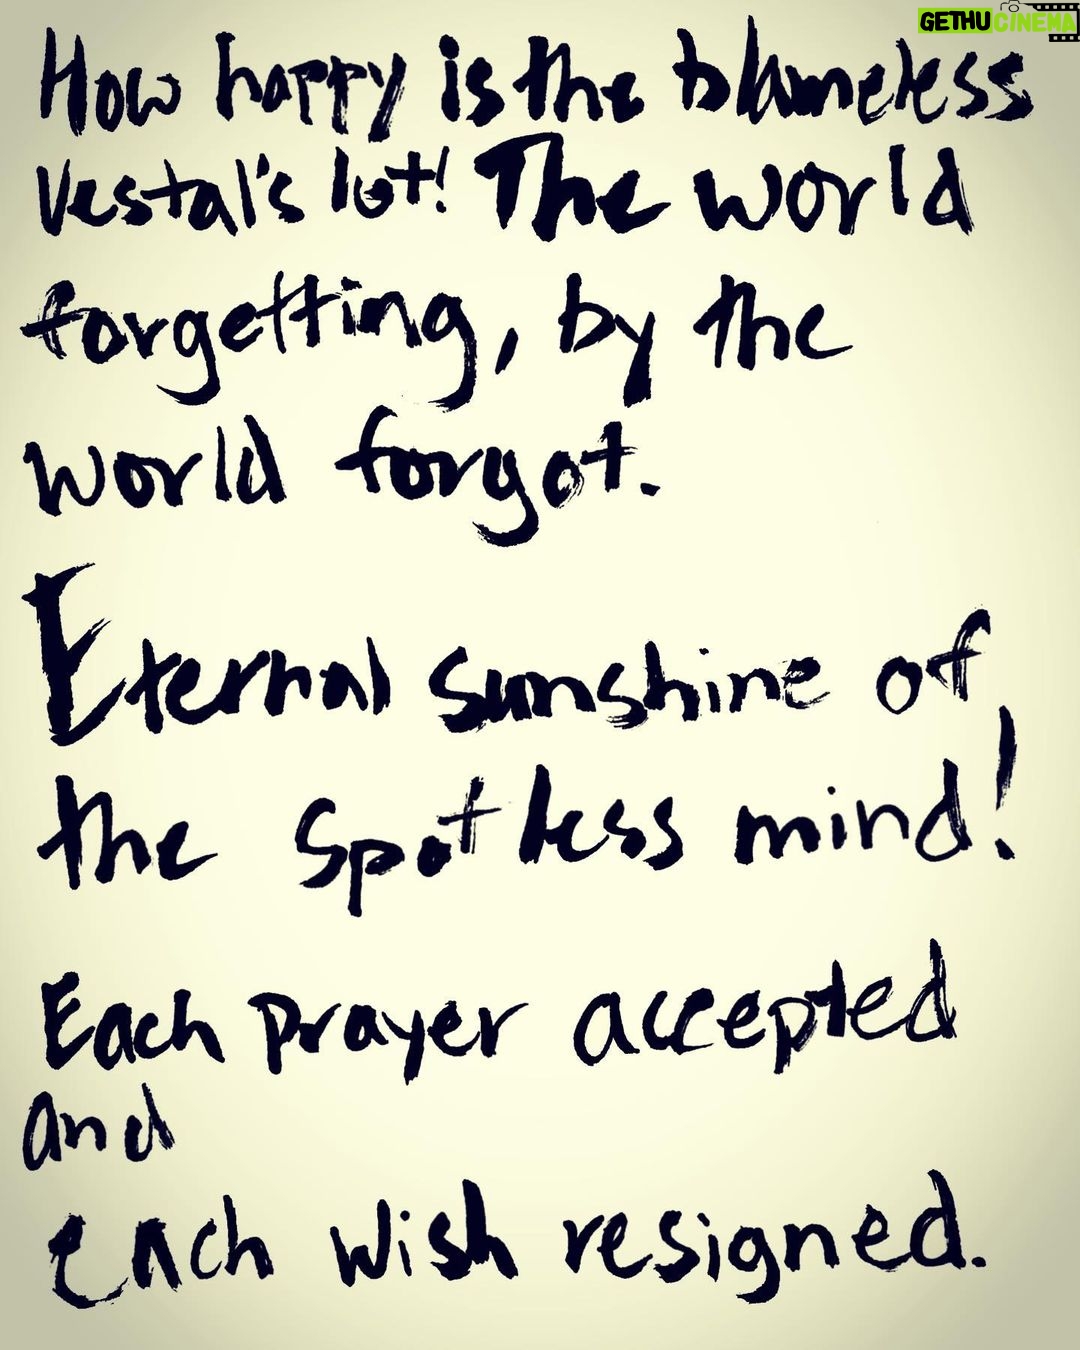 GETHUCINEMA
How happy is the blameless
Vestal's lot! The world
forgetting, by the
world forgot.
Eternal sunshine of
the spotless mind!
Each prayer accepted
and
each wish resigned.